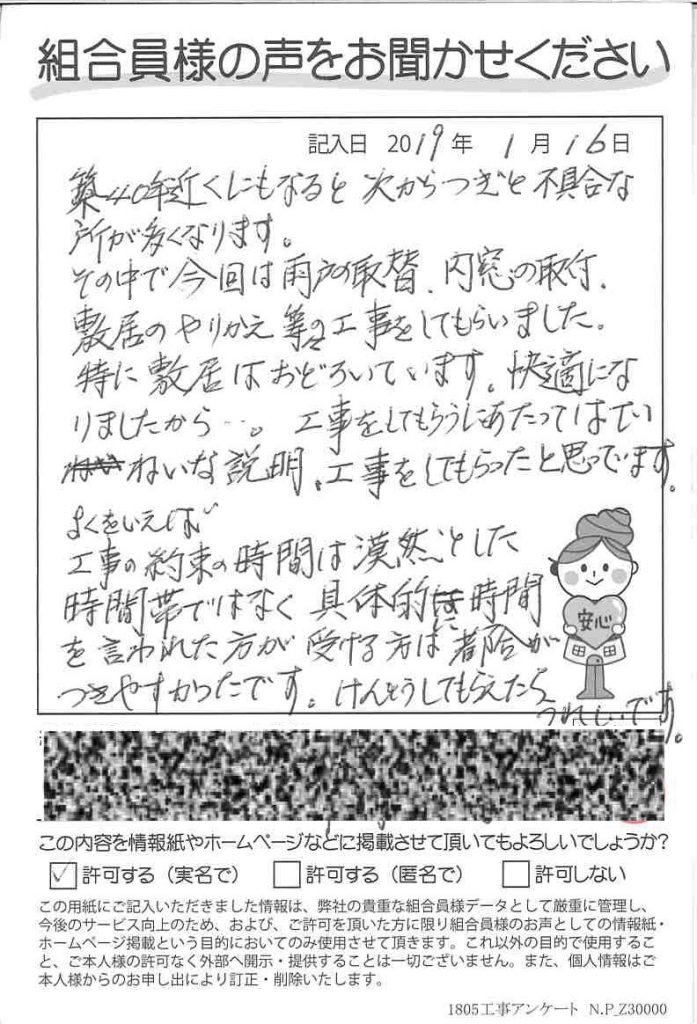 組合員様の声をお聞かせください
記入日 2019年 1月 16日
築40年近くにもなると次からつぎと不具合な
所が多くなります。
その中で今回は雨戸の取替、内窓の取付、
敷居のやりかえ等の工事をしてもらいました。
特に敷居はおどろいています。快適にな
りましたから…。工事をしてもらうにあたってはてい
ねいな説明、工事をしてもらったと思っています。
よくをいえば
工事の約束の時間は漠然とした
時間帯ではなく具体的に時間
を言われた方が受ける方は都合が
つきやすかったです。けんとうしてもらえたら
うれしいです。
安心
この内容を情報紙やホームページなどに掲載させて頂いてもよろしいでしょうか?
☑許可する(実名で) □許可する(匿名で) □許可しない
この用紙にご記入いただきました情報は、弊社の貴重な組合員様データとして厳重に管理し、
今後のサービス向上のため、および、ご許可を頂いた方に限り組合員様のお声としての情報紙・
ホームページ掲載という目的においてのみ使用させて頂きます。これ以外の目的で使用するこ
と、ご本人様の許可なく外部へ開示・提供することは一切ございません。また、個人情報はご
本人様からのお申し出により訂正・削除いたします。
1805工事アンケート N.P_Z30000